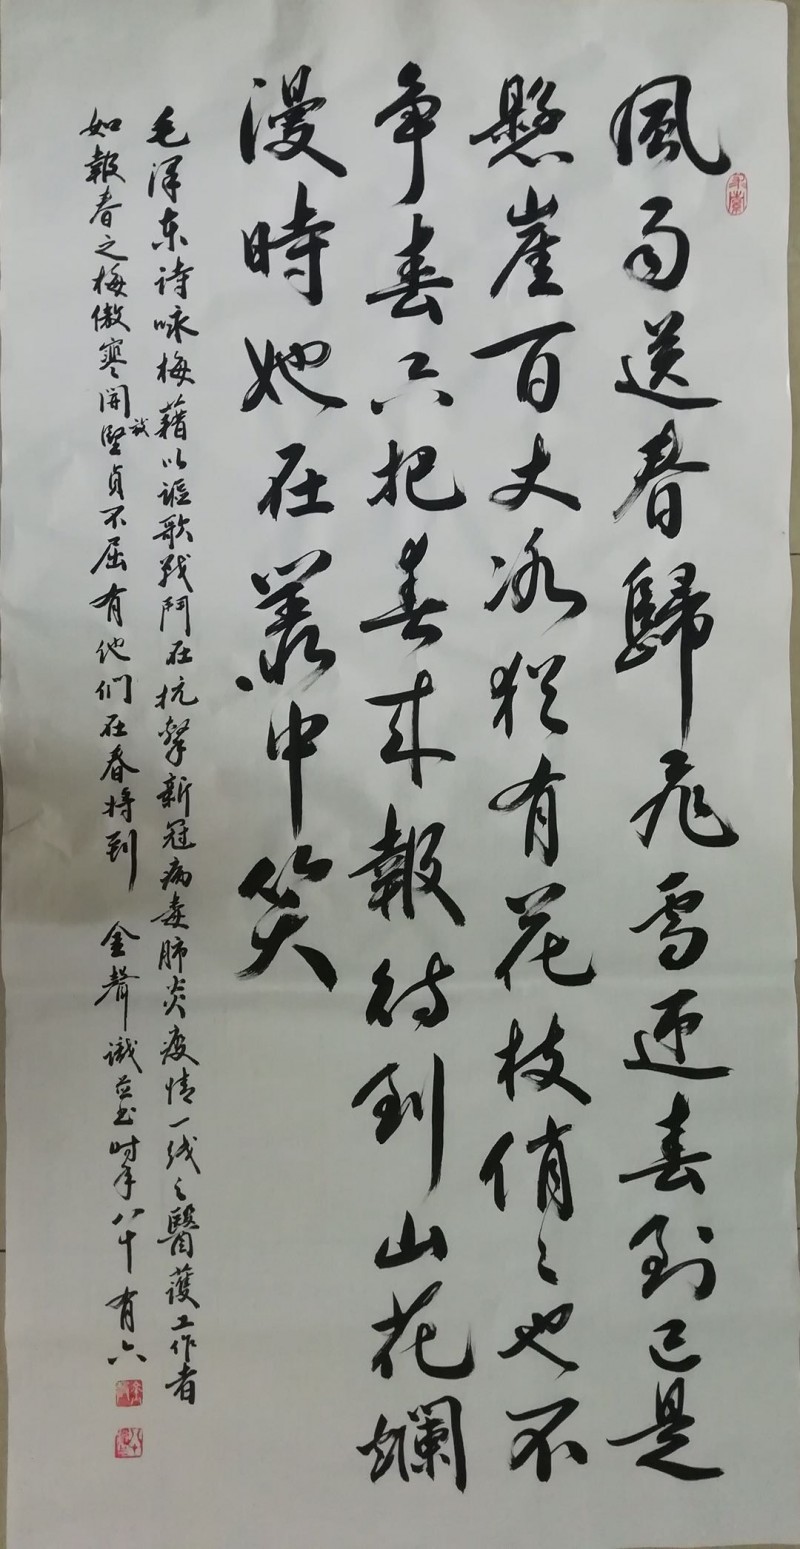 風雨送春歸飛雪迎春到已是
懸崖百丈冰猶有花枝俏俏也不
争春只把春来報待到山花爛
漫時她在叢中笑
毛泽东诗咏梅藉以謳歌战鬥在抗擊新冠病毒肺炎疫情一线之醫護工作者
如報春之梅傲寒開放堅貞不屈有他們在春将到 金聲識並书时年八十有六